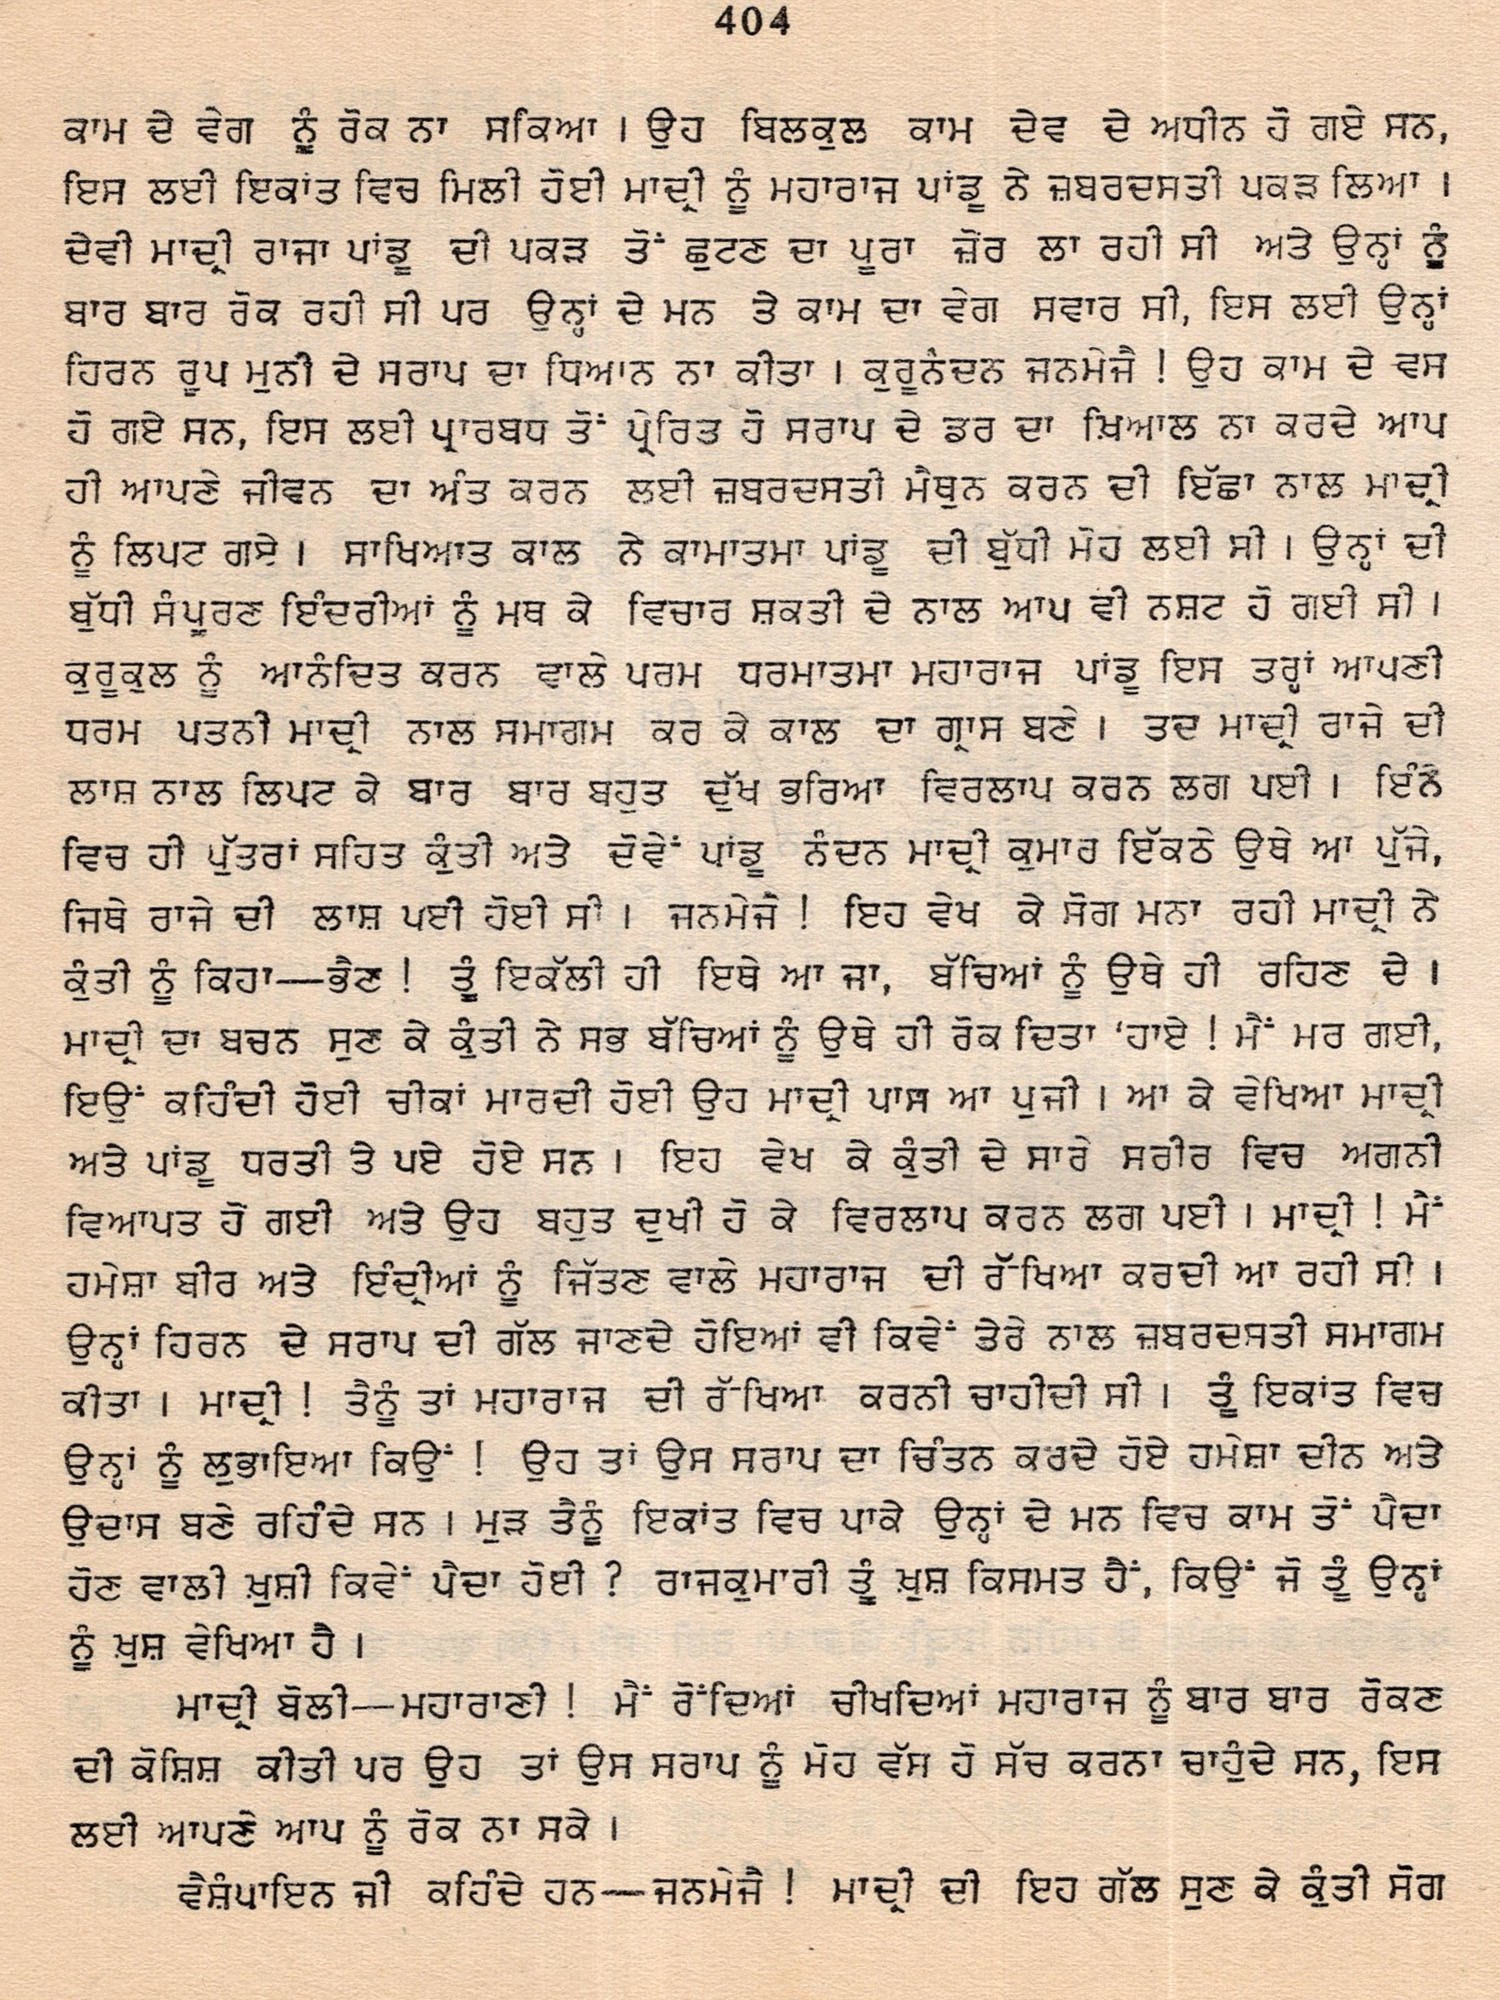 404
ਕਾਮ ਦੇ ਵੇਗ ਨੂੰ ਰੋਕ ਨਾ ਸਕਿਆ । ਉਹ ਬਿਲਕੁਲ ਕਾਮ ਦੇਵ ਦੇ ਅਧੀਨ ਹੋ ਗਏ ਸਨ,
ਇਸ ਲਈ ਇਕਾਂਤ ਵਿਚ ਮਿਲੀ ਹੋਈ ਮਾਦ੍ਰੀ ਨੂੰ ਮਹਾਰਾਜ ਪਾਂਡੂ ਨੇ ਜ਼ਬਰਦਸਤੀ ਪਕੜ ਲਿਆ ।
ਦੇਵੀ ਮਾਦ੍ਰੀ ਰਾਜਾ ਪਾਂਡੂ ਦੀ ਪਕੜ ਤੋਂ ਛੁਟਣ ਦਾ ਪੂਰਾ ਜ਼ੋਰ ਲਾ ਰਹੀ ਸੀ ਅਤੇ ਉਨ੍ਹਾਂ ਨੂੰ
ਬਾਰ ਬਾਰ ਰੋਕ ਰਹੀ ਸੀ ਪਰ ਉਨ੍ਹਾਂ ਦੇ ਮਨ ਤੇ ਕਾਮ ਦਾ ਵੇਗ ਸਵਾਰ ਸੀ, ਇਸ ਲਈ ਉਨ੍ਹਾਂ
ਹਿਰਨ ਰੂਪ ਮੁਨੀ ਦੇ ਸਰਾਪ ਦਾ ਧਿਆਨ ਨਾ ਕੀਤਾ । ਕੁਰੂਨੰਦਨ ਜਨਮੇਜੈ ! ਉਹ ਕਾਮ ਦੇ ਵਸ
ਹੋ ਗਏ ਸਨ, ਇਸ ਲਈ ਪ੍ਰਾਰਬਧ ਤੋਂ ਪ੍ਰੇਰਿਤ ਹੋ ਸਰਾਪ ਦੇ ਡਰ ਦਾ ਖ਼ਿਆਲ ਨਾ ਕਰਦੇ ਆਪ
ਹੀ ਆਪਣੇ ਜੀਵਨ ਦਾ ਅੰਤ ਕਰਨ ਲਈ ਜ਼ਬਰਦਸਤੀ ਮੈਥੁਨ ਕਰਨ ਦੀ ਇੱਛਾ ਨਾਲ ਮਾਦ੍ਰੀ
ਨੂੰ ਲਿਪਟ ਗਏ । ਸਾਖਿਆਤ ਕਾਲ ਨੇ ਕਾਮਾਤਮਾ ਪਾਂਡੂ ਦੀ ਬੁੱਧੀ ਮੋਹ ਲਈ ਸੀ । ਉਨ੍ਹਾਂ ਦੀ
ਬੁੱਧੀ ਸੰਪੂਰਣ ਇੰਦਰੀਆਂ ਨੂੰ ਮਥ ਕੇ ਵਿਚਾਰ ਸ਼ਕਤੀ ਦੇ ਨਾਲ ਆਪ ਵੀ ਨਸ਼ਟ ਹੋ ਗਈ ਸੀ ।
ਕੁਰੂਕੁਲ ਨੂੰ ਆਨੰਦਿਤ ਕਰਨ ਵਾਲੇ ਪਰਮ ਧਰਮਾਤਮਾ ਮਹਾਰਾਜ ਪਾਂਡੂ ਇਸ ਤਰ੍ਹਾਂ ਆਪਣੀ
ਧਰਮ ਪਤਨੀ ਮਾਦ੍ਰੀ ਨਾਲ ਸਮਾਗਮ ਕਰ ਕੇ ਕਾਲ ਦਾ ਗ੍ਰਾਸ ਬਣੇ । ਤਦ ਮਾਦ੍ਰੀ ਰਾਜੇ ਦੀ
ਲਾਸ਼ ਨਾਲ ਲਿਪਟ ਕੇ ਬਾਰ ਬਾਰ ਬਹੁਤ ਦੁੱਖ ਭਰਿਆ ਵਿਰਲਾਪ ਕਰਨ ਲਗ ਪਈ । ਇੰਨੇ
ਵਿਚ ਹੀ ਪੁੱਤਰਾਂ ਸਹਿਤ ਕੁੰਤੀ ਅਤੇ ਦੋਵੇਂ ਪਾਂਡੂ ਨੰਦਨ ਮਾਦ੍ਰੀ ਕੁਮਾਰ ਇੱਕਠੇ ਉਥੇ ਆ ਪੁੱਜੇ,
ਜਿਥੇ ਰਾਜੇ ਦੀ ਲਾਸ਼ ਪਈ ਹੋਈ ਸੀ । ਜਨਮੇਜੈ ! ਇਹ ਵੇਖ ਕੇ ਸੋਗ ਮਨਾ ਰਹੀ ਮਾਦ੍ਰੀ ਨੇ
ਕੁੰਤੀ ਨੂੰ ਕਿਹਾ—ਭੈਣ ! ਤੂੰ ਇਕੱਲੀ ਹੀ ਇਥੇ ਆ ਜਾ, ਬੱਚਿਆਂ ਨੂੰ ਉਥੇ ਹੀ ਰਹਿਣ ਦੇ ।
ਮਾਦ੍ਰੀ ਦਾ ਬਚਨ ਸੁਣ ਕੇ ਕੁੰਤੀ ਨੇ ਸਭ ਬੱਚਿਆਂ ਨੂੰ ਉਥੇ ਹੀ ਰੋਕ ਦਿਤਾ ‘ਹਾਏ ! ਮੈਂ ਮਰ ਗਈ,
ਇਉਂ ਕਹਿੰਦੀ ਹੋਈ ਚੀਕਾਂ ਮਾਰਦੀ ਹੋਈ ਉਹ ਮਾਦ੍ਰੀ ਪਾਸ ਆ ਪੁਜੀ । ਆ ਕੇ ਵੇਖਿਆ ਮਾਦ੍ਰੀ
ਅਤੇ ਪਾਂਡੂ ਧਰਤੀ ਤੇ ਪਏ ਹੋਏ ਸਨ । ਇਹ ਵੇਖ ਕੇ ਕੁੰਤੀ ਦੇ ਸਾਰੇ ਸਰੀਰ ਵਿਚ ਅਗਨੀ
ਵਿਆਪਤ ਹੋ ਗਈ ਅਤੇ ਉਹ ਬਹੁਤ ਦੁਖੀ ਹੋ ਕੇ ਵਿਰਲਾਪ ਕਰਨ ਲਗ ਪਈ । ਮਾਦ੍ਰੀ ! ਮੈਂ
ਹਮੇਸ਼ਾ ਬੀਰ ਅਤੇ ਇੰਦ੍ਰੀਆਂ ਨੂੰ ਜਿੱਤਣ ਵਾਲੇ ਮਹਾਰਾਜ ਦੀ ਰੱਖਿਆ ਕਰਦੀ ਆ ਰਹੀ ਸੀ ।
ਉਨ੍ਹਾਂ ਹਿਰਨ ਦੇ ਸਰਾਪ ਦੀ ਗੱਲ ਜਾਣਦੇ ਹੋਇਆਂ ਵੀ ਕਿਵੇਂ ਤੇਰੇ ਨਾਲ ਜ਼ਬਰਦਸਤੀ ਸਮਾਗਮ
ਕੀਤਾ । ਮਾਦ੍ਰੀ ! ਤੈਨੂੰ ਤਾਂ ਮਹਾਰਾਜ ਦੀ ਰੱਖਿਆ ਕਰਨੀ ਚਾਹੀਦੀ ਸੀ । ਤੂੰ ਇਕਾਂਤ ਵਿਚ
ਉਨ੍ਹਾਂ ਨੂੰ ਲੁਭਾਇਆ ਕਿਉਂ ! ਉਹ ਤਾਂ ਉਸ ਸਰਾਪ ਦਾ ਚਿੰਤਨ ਕਰਦੇ ਹੋਏ ਹਮੇਸ਼ਾ ਦੀਨ ਅਤੇ
ਉਦਾਸ ਬਣੇ ਰਹਿੰਦੇ ਸਨ । ਮੁੜ ਤੈਨੂੰ ਇਕਾਂਤ ਵਿਚ ਪਾਕੇ ਉਨ੍ਹਾਂ ਦੇ ਮਨ ਵਿਚ ਕਾਮ ਤੋਂ ਪੈਦਾ
ਹੋਣ ਵਾਲੀ ਖ਼ੁਸ਼ੀ ਕਿਵੇਂ ਪੈਦਾ ਹੋਈ ? ਰਾਜਕੁਮਾਰੀ ਤੂੰ ਖ਼ੁਸ਼ ਕਿਸਮਤ ਹੈਂ, ਕਿਉਂ ਜੋ ਤੂੰ ਉਨ੍ਹਾਂ
ਨੂੰ ਖ਼ੁਸ਼ ਵੇਖਿਆ ਹੈ ।
ਮਾਦ੍ਰੀ ਬੋਲੀ—ਮਹਾਰਾਣੀ ! ਮੈਂ ਰੋਂਦਿਆਂ ਚੀਖਦਿਆਂ ਮਹਾਰਾਜ ਨੂੰ ਬਾਰ ਬਾਰ ਰੋਕਣ
ਦੀ ਕੋਸ਼ਿਸ਼ ਕੀਤੀ ਪਰ ਉਹ ਤਾਂ ਉਸ ਸਰਾਪ ਨੂੰ ਮੋਹ ਵੱਸ ਹੋ ਸੱਚ ਕਰਨਾ ਚਾਹੁੰਦੇ ਸਨ, ਇਸ
ਲਈ ਆਪਣੇ ਆਪ ਨੂੰ ਰੋਕ ਨਾ ਸਕੇ ।
ਵੈਸ਼ੰਪਾਇਨ ਜੀ ਕਹਿੰਦੇ ਹਨ—ਜਨਮੇਜੈ ! ਮਾਦ੍ਰੀ ਦੀ ਇਹ ਗੱਲ ਸੁਣ ਕੇ ਕੁੰਤੀ ਸੋਗ